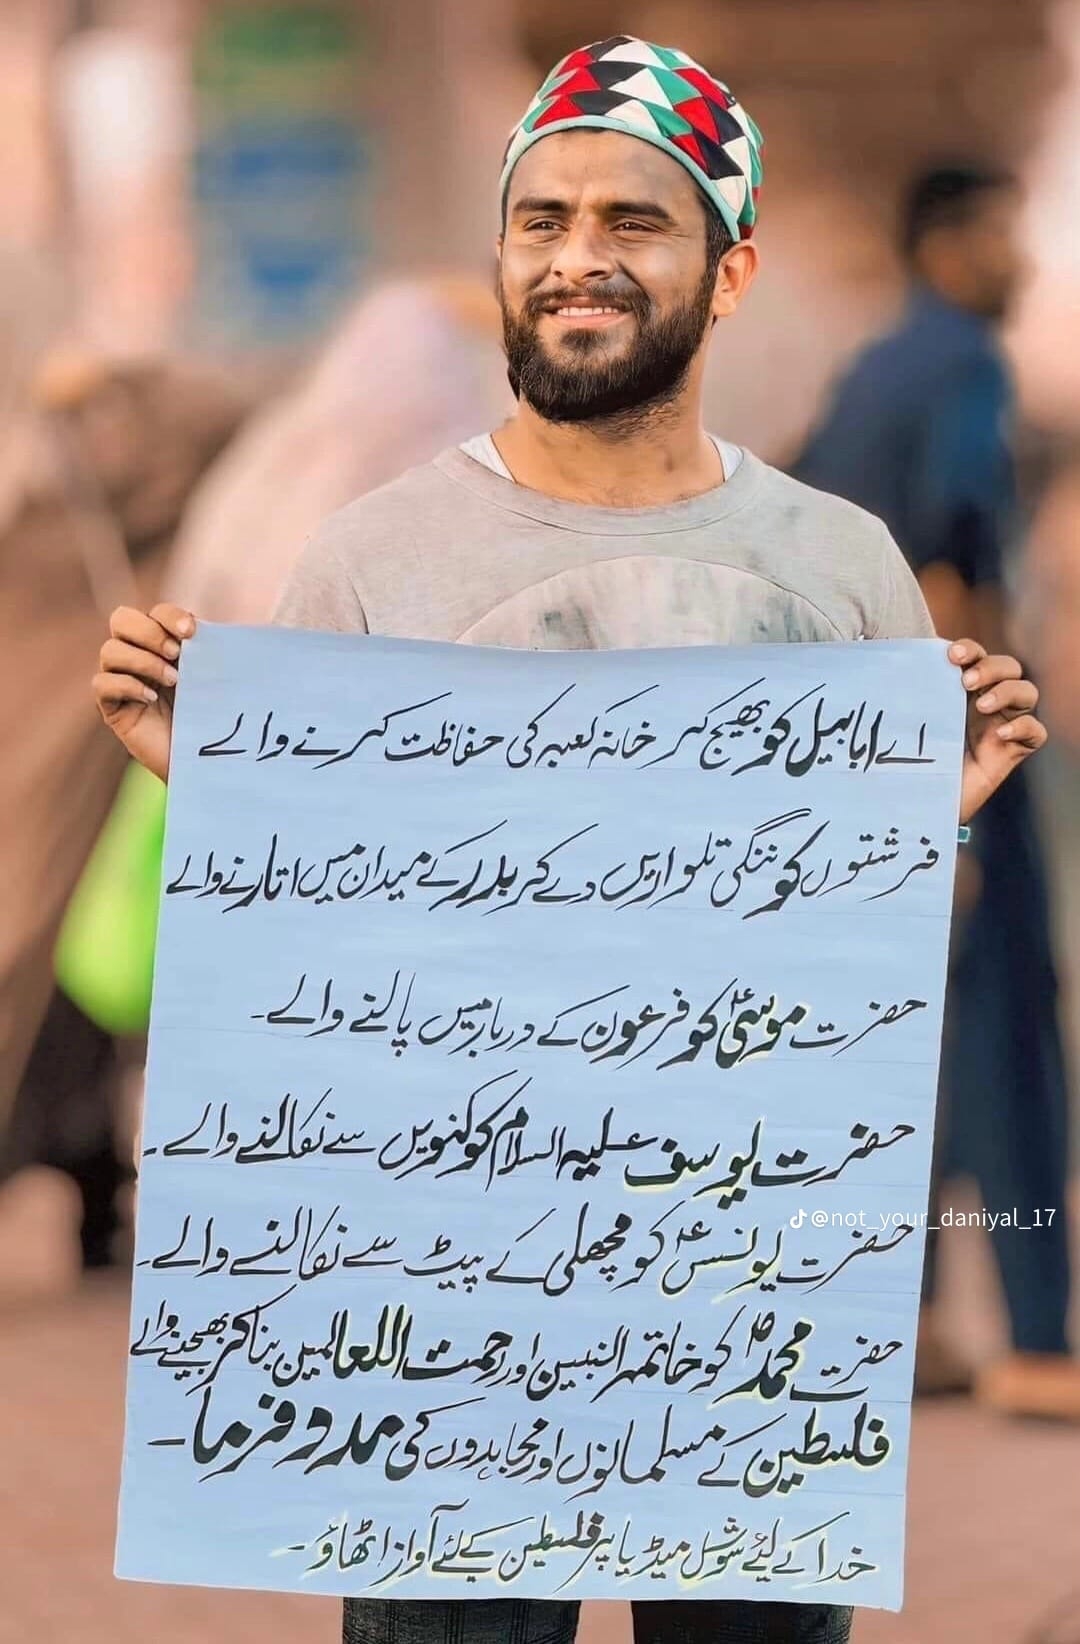 اے ابابیل کو بھیج کر خانہ کعبہ کی حفاظت کرنے والے
فرشتوں کو ننگی تلواریں دے کر بدر کے میدان میں اتارنے والے
حضرت موسیٰؑ کو فرعون کے دربار میں پالنے والے۔
حضرت یوسف علیہ السلام کو کنویں سے نکالنے والے۔
حضرت یونسؑ کو مچھلی کے پیٹ سے نکالنے والے۔
حضرت محمدؐ کو خاتم النبین اور رحمت اللعالمین بنا کر بھیجنے والے
فلسطین کے مسلمانوں اور مجاہدوں کی مدد فرما۔
خدا کے لئے سوشل میڈیا پر فلسطین کے لئے آواز اٹھاؤ۔
@not_your_daniyal_17